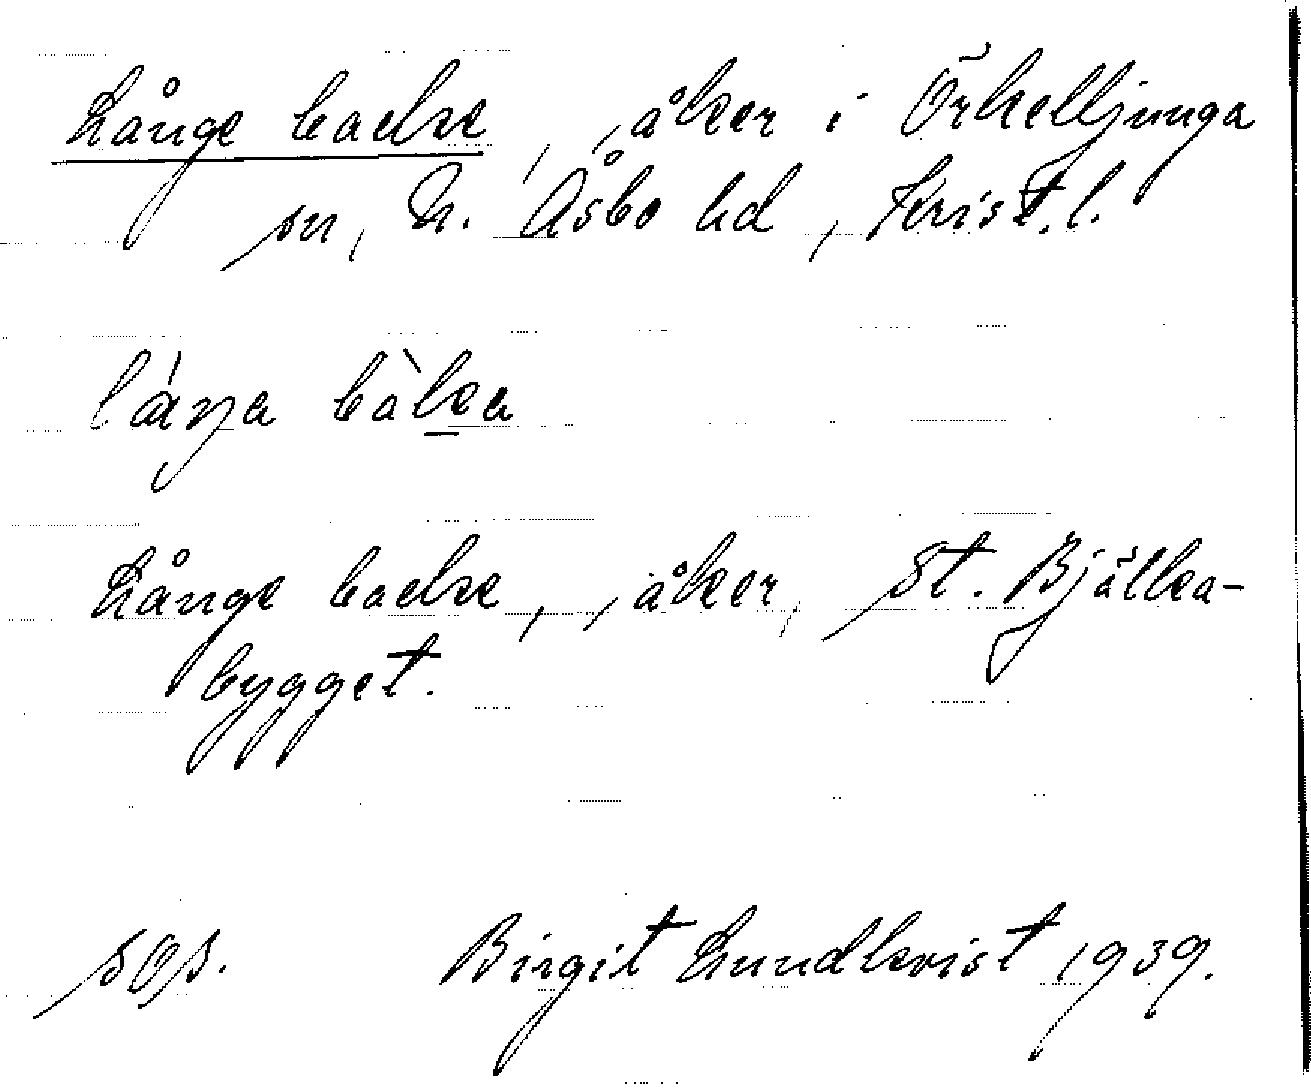 Långe backe, åker i Örkelljunga
sn, N. Åsbo hd, Krist. l.
Långe backe, åker, St. Bjälka-
bygget.
Birgit Lundkvist 1939.